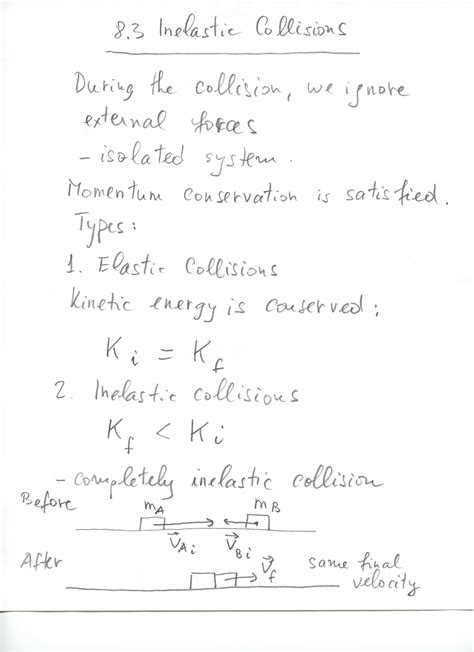 8.3 Inelastic Collisions
During the collision, we ignore
external forces
- isolated system.
Momentum conservation is satisfied.
Types:
1. Elastic Collisions
Kinetic energy is conserved:
K i = K f
2. Inelastic collisions
K f < K i
- completely inelastic collision
Before m A m B
V A i V B i
After V f same final
velocity